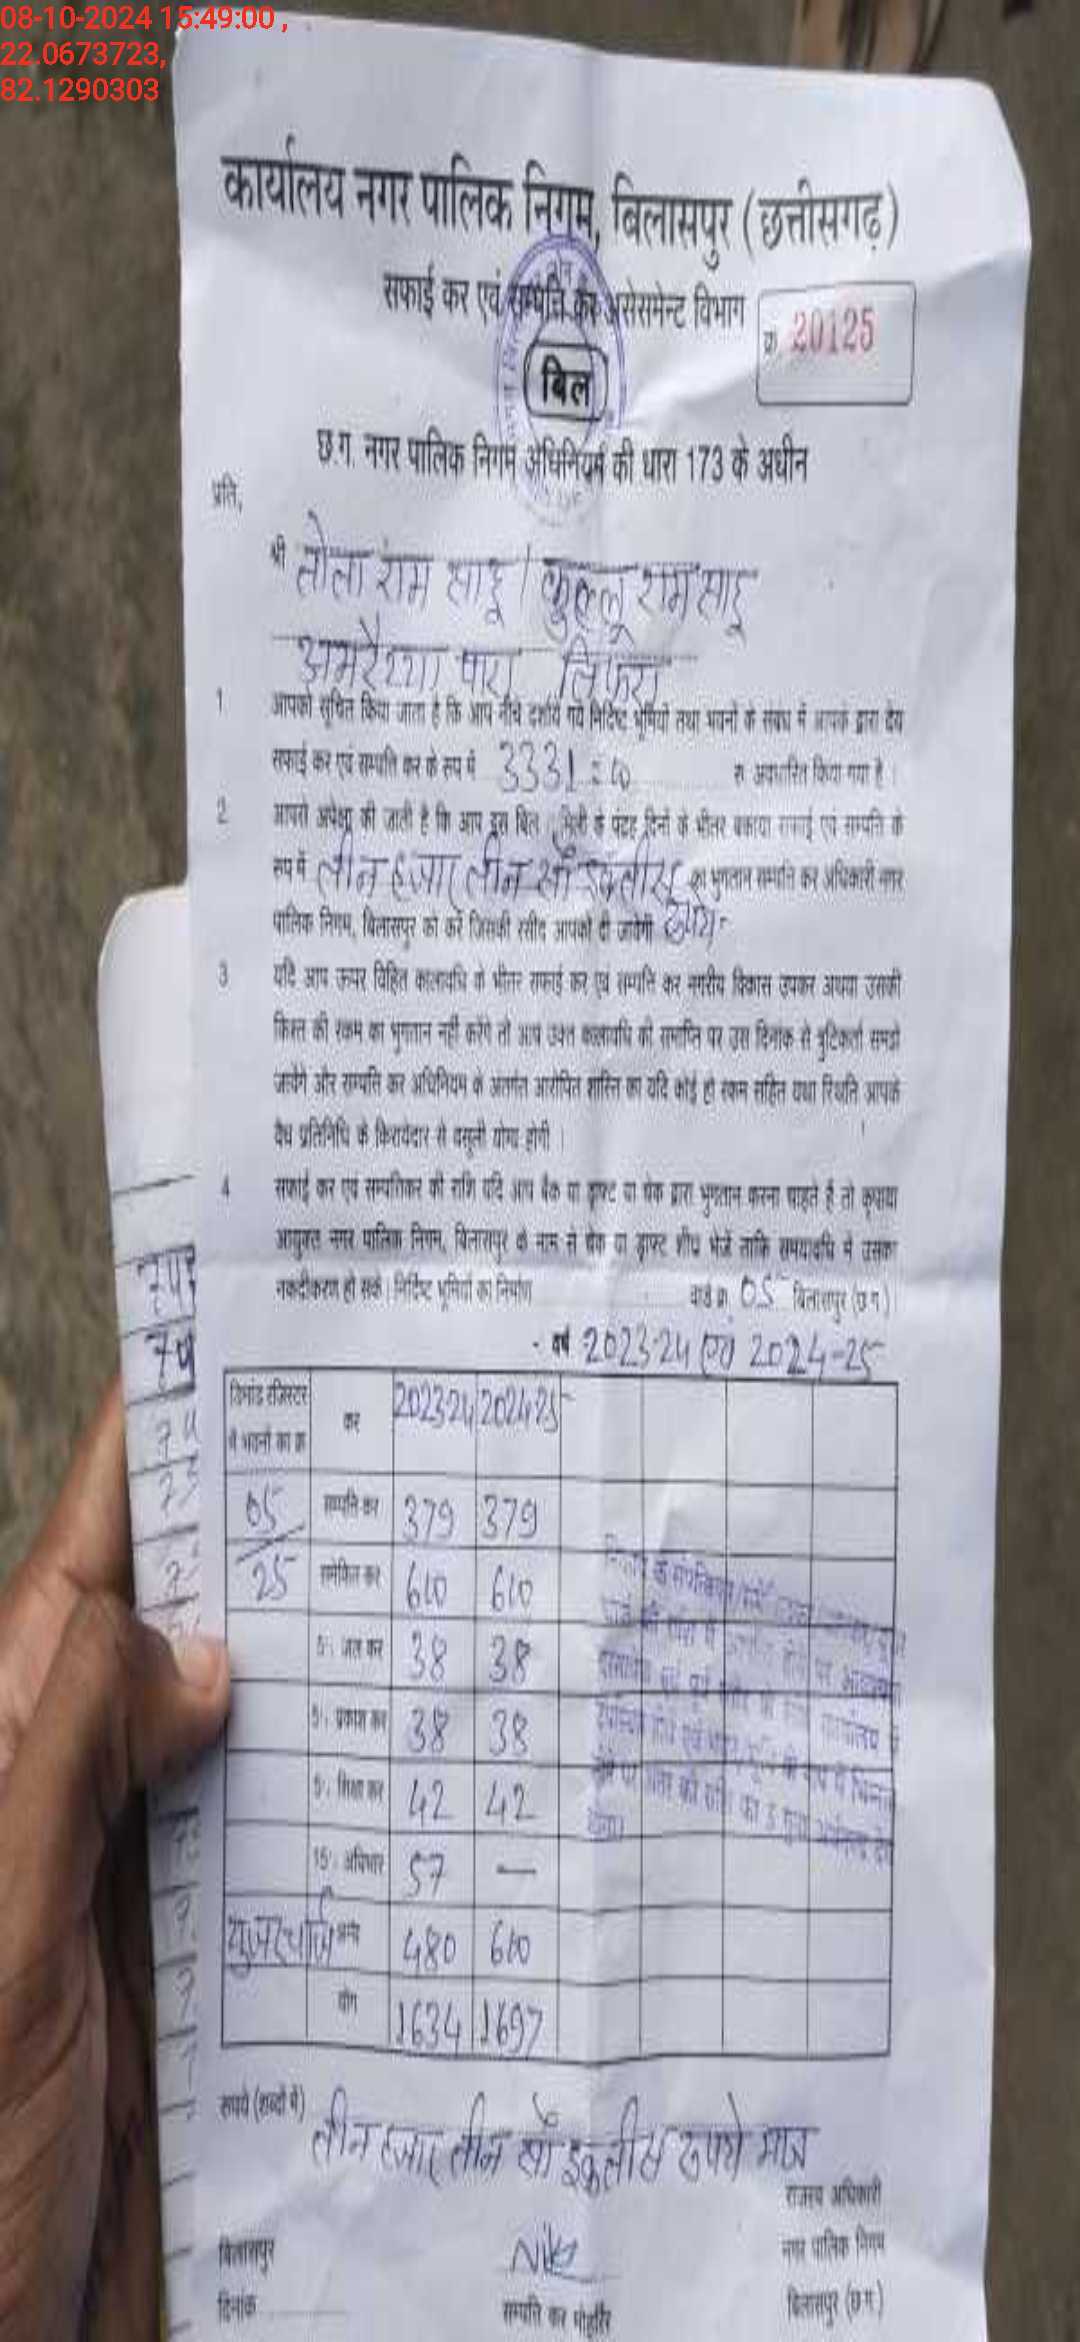 08-10-2024 15:49:00 ,
22.0673723,
82.1290303
कार्यालय नगर पालिक निगम, बिलासपुर (छत्तीसगढ़)
सफाई कर एवं सम्पत्ति कर असेसमेन्ट विभाग
क्र. 20125
बिल
छ.ग. नगर पालिक निगम अधिनियम की धारा 173 के अधीन
प्रति,
श्री तोता राम साहू / कुल्लू राम साहू
अमरैय्या पारा तिफरा
1 आपको सूचित किया जाता है कि आप नीचे दर्शाये गये निर्दिष्ट भूमियों तथा भवनों के संबंध में आपके द्वारा देय
सफाई कर एवं सम्पत्ति कर के रूप में 3331=00 रु. अवधारित किया गया है ।
2 आपसे अपेक्षा की जाती है कि आप इस बिल मिली के पंद्रह दिनों के भीतर बकाया सफाई एवं सम्पत्ति के
रूप में तीन हजार तीन सौ इकतीस रूपये का भुगतान सम्पत्ति कर अधिकारी नगर
पालिक निगम, बिलासपुर को करें जिसकी रसीद आपको दी जावेगी
3 यदि आप ऊपर विहित कालावधि के भीतर सफाई कर एवं सम्पत्ति कर नगरीय विकास उपकर अथवा उसकी
किस्त की रकम का भुगतान नहीं करेंगे तो आप उक्त कालावधि की समाप्ति पर उस दिनांक से त्रुटिकर्ता समझे
जायेंगे और सम्पत्ति कर अधिनियम के अंतर्गत आरोपित शास्ति का यदि कोई हो रकम सहित यथा स्थिति आपके
वैध प्रतिनिधि के किरायेदार से वसूली योग्य होगी ।
4 सफाई कर एवं सम्पत्तिकर की राशि यदि आप बैंक या ड्राफ्ट या चेक द्वारा भुगतान करना चाहते हैं तो कृपया
आयुक्त नगर पालिक निगम, बिलासपुर के नाम से चेक या ड्राफ्ट शीघ्र भेजें ताकि समयावधि में उसका
नकदीकरण हो सके। निर्दिष्ट भूमियों का निर्माण वार्ड क्र. 05 बिलासपुर (छ.ग.)
वर्ष 2023-24 एवं 2024-25
डिमांड रजिस्टर में भवनों का क्र कर 2023-24 2024-25
05 सम्पत्ति कर 379 379
25 समेकित कर 600 600
5% जल कर 38 38
5% प्रकाश कर 38 38
5% शिक्षा कर 42 42
15% अधिभार 57 —
यूजर चार्ज अन्य 480 600
योग 1634 1697
रूपये (शब्दों में) तीन हजार तीन सौ इकतीस रुपये मात्र
राजस्व अधिकारी
बिलासपुर नगर पालिक निगम
दिनांक सम्पत्ति कर मोहर्रिर बिलासपुर (छ.ग.)